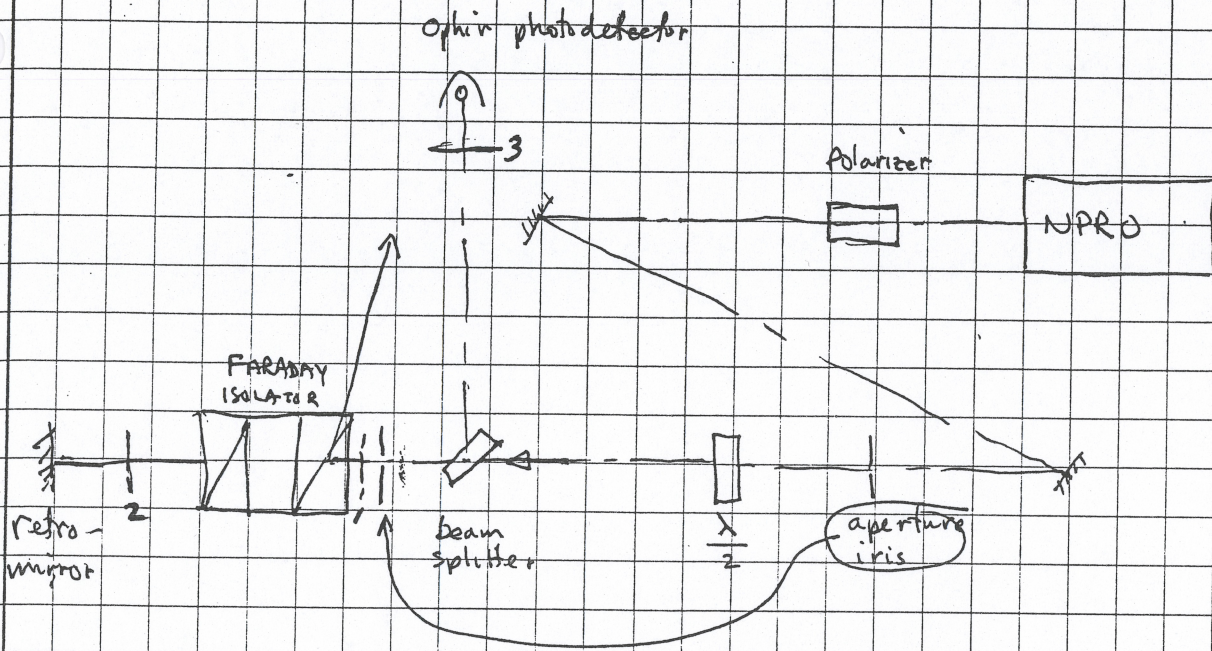 Ophir photodetector
3
Polarizer
NPRO
FARADAY
ISOLATOR
2
1
retro-
mirror
beam
splitter
λ
2
aperture
iris